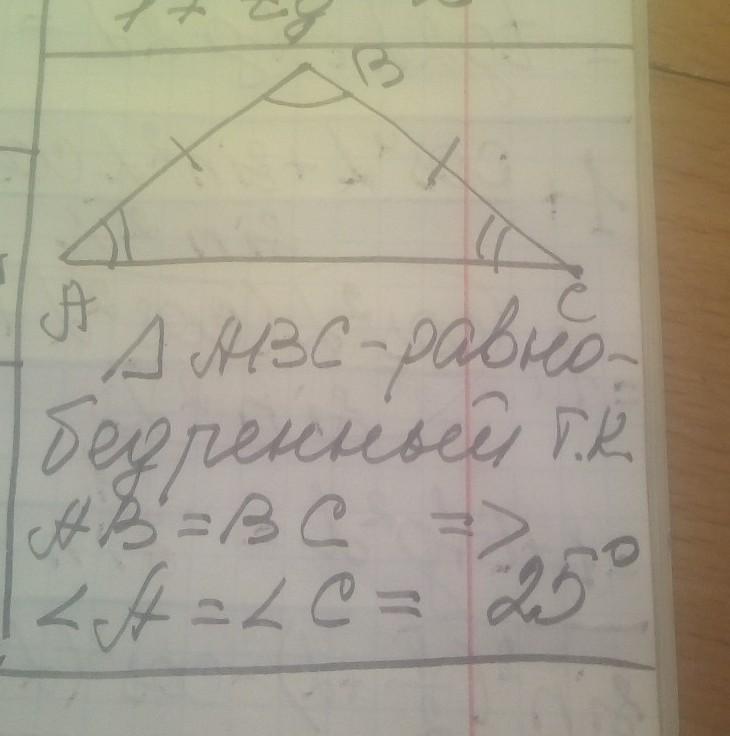 B
A
C
Δ ABC - равно-
бедренный т.к
AB = BC =>
∠A = ∠C = 25°